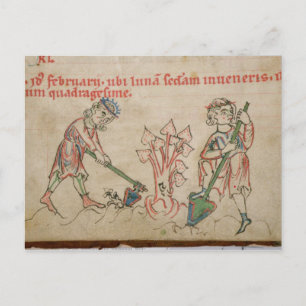 KL
. id9 februarij. ubi lunã secđam inveneris. d
um quadragesime.